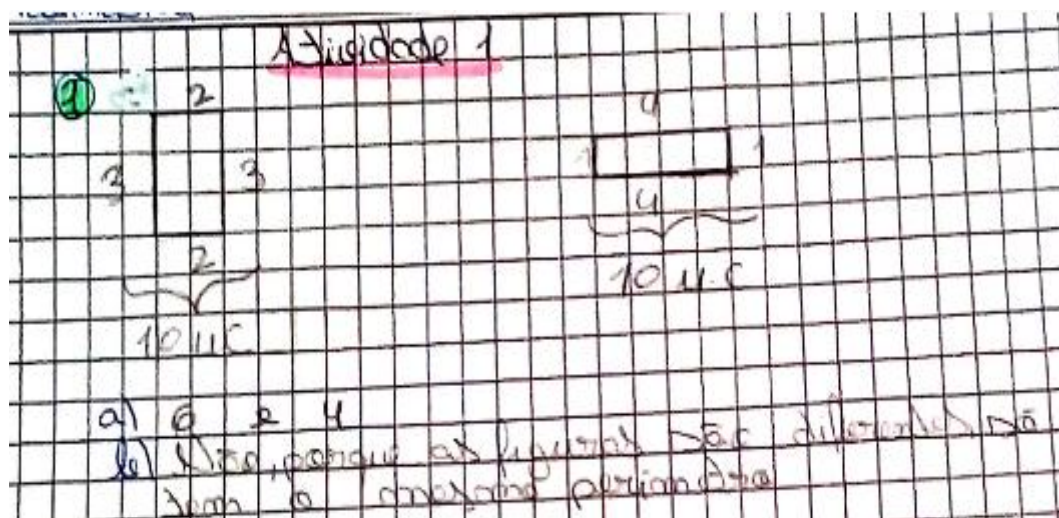 Atividade 1
1 2
3 3
2
10 u.c
4
1 1
4
10 u.c
a) 6 e 4
b) Não, porque as figuras são diferentes, só
tem o mesmo perimetro